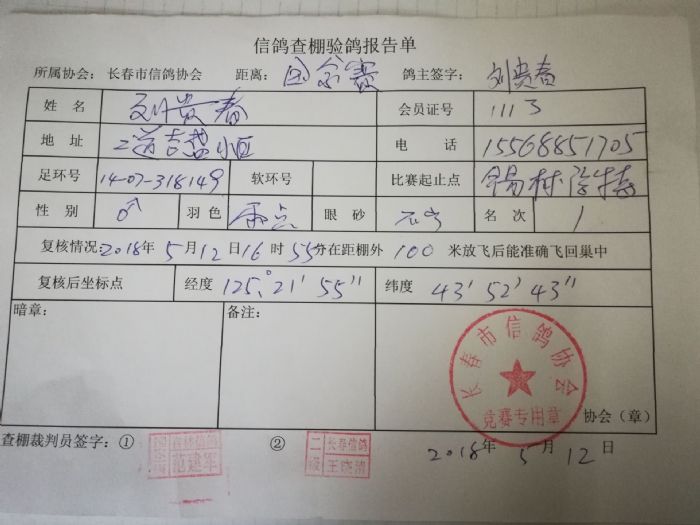 信鸽查棚验鸽报告单
所属协会：长春市信鸽协会 距离： 国家赛 鸽主签字： 刘贵春
姓 名 刘贵春 会员证号 1113
地 址 二道吉盛小区 电 话 15568851705
足环号 14-07-318149 软环号 比赛起止点 锡林浩特
性 别 ♂ 羽色 雨点 眼 砂 名 次 1
复核情况：2018年5月12日16时55分在距棚外100米放飞后能准确飞回巢中
复核后坐标点 经度 125°21′55″ 纬度 43′52′43″
暗章： 备注：
长春市信鸽协会
竞赛专用章
协会（章）
查棚裁判员签字：① 吉林信鸽 范建军 ② 二级 长春信鸽
2018年5月12日